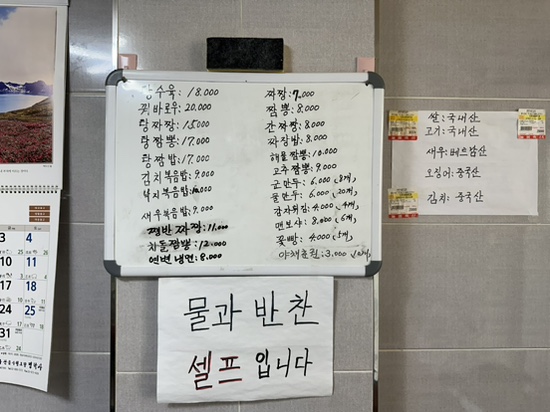 탕수육: 18,000
꿔바로우: 20,000
탕짜장: 15,000
탕짬뽕: 17,000
탕짬밥: 17,000
김치볶음밥: 9,000
낙지볶음밥: 10,000
새우볶음밥: 9,000
쟁반 짜장: 11,000
차돌짬뽕: 12,000
연변냉면: 8,000
짜장: 7,000
짬뽕: 8,000
간짜장: 8,000
짜장밥: 8,000
해물짬뽕: 10,000
고추짬뽕: 9,000
군만두: 6,000 (8개)
물만두: 6,000 (20개)
감자튀김: 4,000 (4개)
맨보샤: 8,000 (6개)
꽃빵: 4,000 (5개)
야채춘권: 3,000
쌀: 국내산
고기: 국내산
새우: 베트남산
오징어: 중국산
김치: 중국산
물과 반찬
셀프 입니다
3 4
10 11
17 18
24 25
31